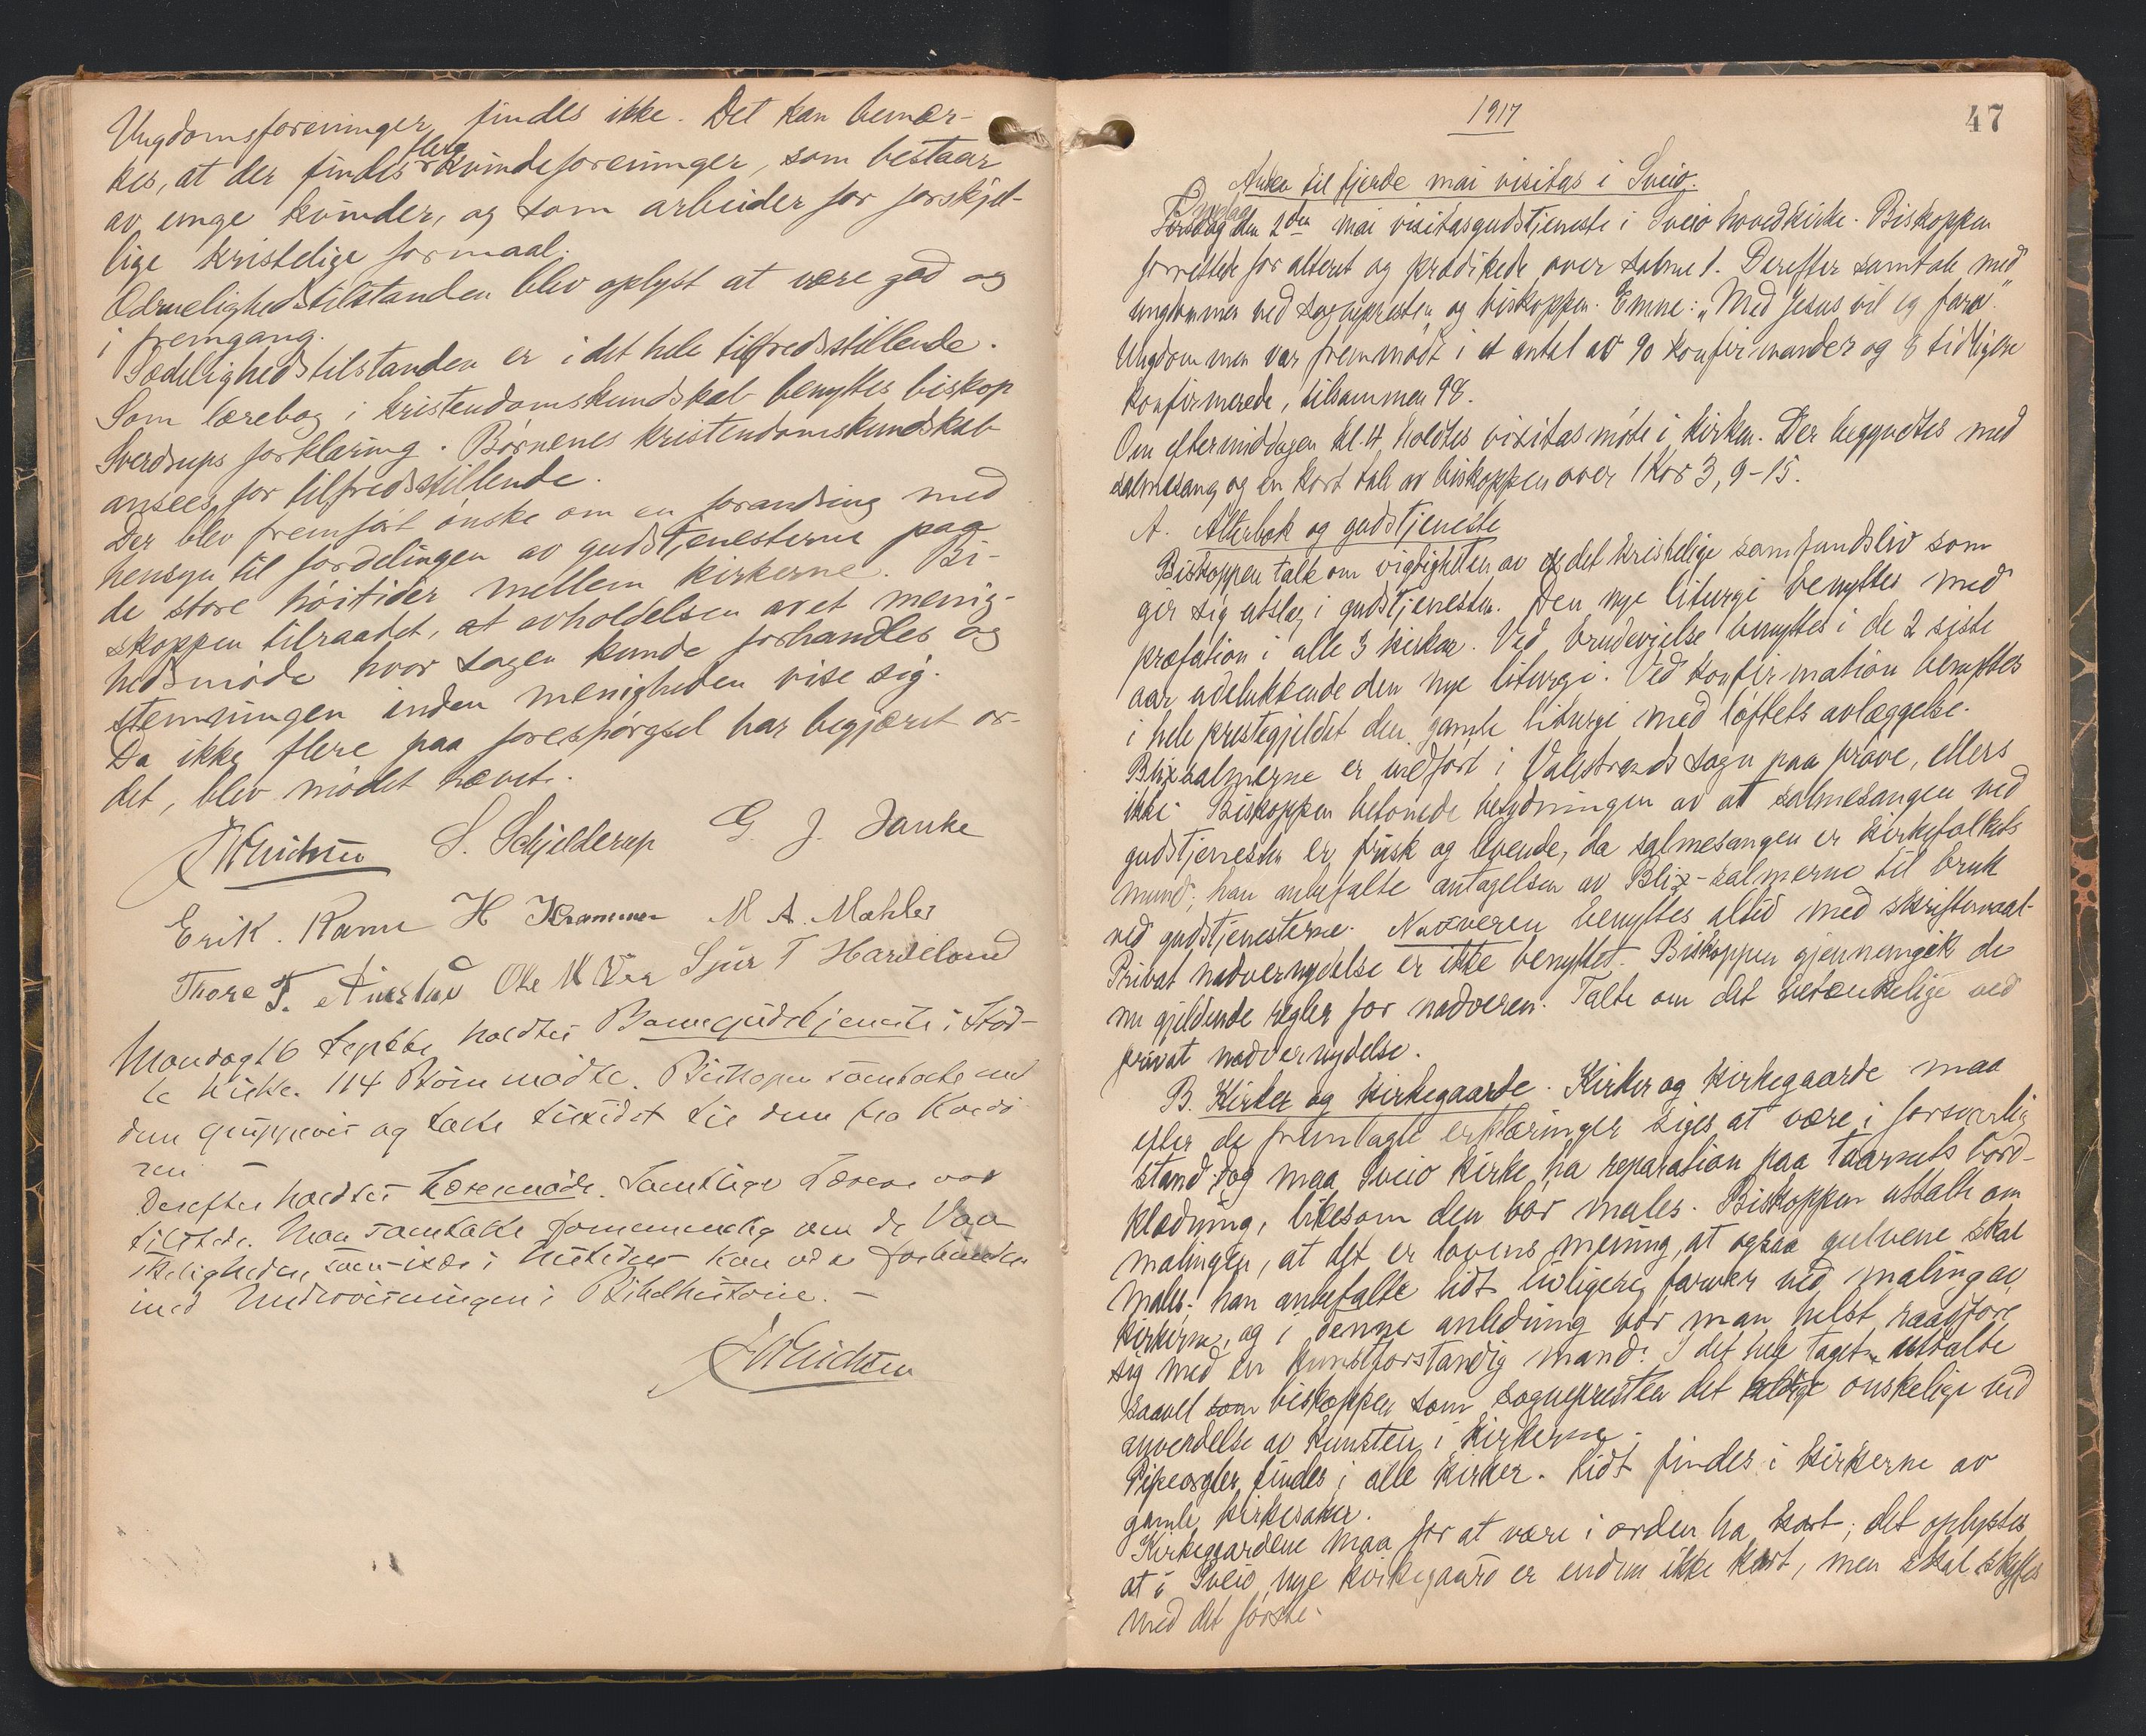 Ungdomsforeninger findes ikke. Det kan bemær-
kes, at der findes flere kvindeforeninger, som bestaar
av unge kvinder, og som arbeider for forskjel-
lige kristelige formaal.
Ædruelighedstilstanden blev oplyst at være god og
i fremgang.
Sædelighedstilstanden er i det hele tilfredsstillende.
Som lærebog i kristendomskundskab benyttes biskop
Sverdrups forklaring. Børnenes kristendomskundskab
ansees for tilfredsstillende.
Der blev fremført ønske om en forandring med
hensyn til fordelingen av gudstjenesterne paa
de store høitider mellem kirkerne. Bi-
skoppen tilraadet, at avholdelsen av et menig-
hedsmøde hvor sagen kunde forhandles og
stemningen inden menigheden vise sig.
Da ikke flere paa forespørgsel har begjæret or-
det, blev mødet hævet.
S. Schjelderup G. J. Janke
Erik. H M A. Mahler
Thore T. Sjur T Hardeland
Mandag 16 holdtes Barnegudstjeneste i
kirke. 114 Børn mødte. Biskopen samtalte med
dem gruppevis og talte til dem fra
Derefter holdtes Lærermøde. Samtlige Lærere var
tilstede. Man samtalte fornemmelig om de Van-
skeligheder, som i kan være forbundne
med Undervisningen i Bibelhistorie. –
1917
47
Anden til fjerde mai visitas i Sveio.
Onsdag den 2den mai visitasgudstjeneste i Sveio hovedkirke. Biskoppen
forrettede for alteret og prædikede over salme 1. Derefter samtale med
ungdommen ved sognepresten og biskoppen. Emne: „Med Jesus vil eg fara."
Ungdommen var fremmødt i et antal av 90 konfirmander og 8 tidligere
konfirmerede, tilsammen 98.
Om eftermiddagen kl. 4 holdtes visitasmøte i kirken. Der begyndtes med
salmesang og en kort tale av biskoppen over 1 Kor 3, 9-15.
A. Alterbok og gudstjeneste
Biskoppen talte om vigtigheten av det kristelige samfundsliv som
gir sig utslag i gudstjenesten. Den nye liturgi benyttes med
præfation i alle 3 kirker. Ved brudevielse benyttes i de 2 siste
aar udelukkende den nye liturgi. Ved konfirmation benyttes
i hele prestegjeldet den gamle liturgi med løftets avlæggelse.
Blixsalmerne er indført i Valestrands sogn paa prøve, ellers
ikke. Biskoppen betonede betydningen av at salmesangen ved
gudstjenesten er frisk og levende, da salmesangen er kirkefolkets
mund; han anbefalte antagelsen av Blix-salmerne til bruk
ved gudstjenesterne. Nadveren benyttes altid med skriftemaal.
Privat nadvernydelse er ikke benyttet. Biskoppen gjennemgik de
nu gjeldende regler for nadveren. Talte om det betænkelige ved
privat nadvernydelse.
B. Kirker og kirkegaarde. Kirker og kirkegaarde maa
efter de fremlagte erklæringer siges at være i forsvarlig
stand; dog maa Sveio kirke ha reparation paa taarnets bord-
klædning, likesom den bør males. Biskoppen uttalte om
malingen, at det er lovens mening, at ogsaa gulvene skal
males. han anbefalte lidt livligere farver ved maling av
kirkerne, og i denne anledning bør man helst raadføre
sig med en kunstforstandig mand. I det hele taget uttalte
saavel som biskoppen som sognepresten det ønskelige ved
anvendelse av kunsten i kirkerne.
Pipeorgler findes i alle kirker. Lidt findes i kirkerne av
gamle kirkesaker.
Kirkegaardene maa for at være i orden ha kart; det oplystes
at i Sveio nye kirkegaard er endnu ikke kart, men skal skyffes
med det første.